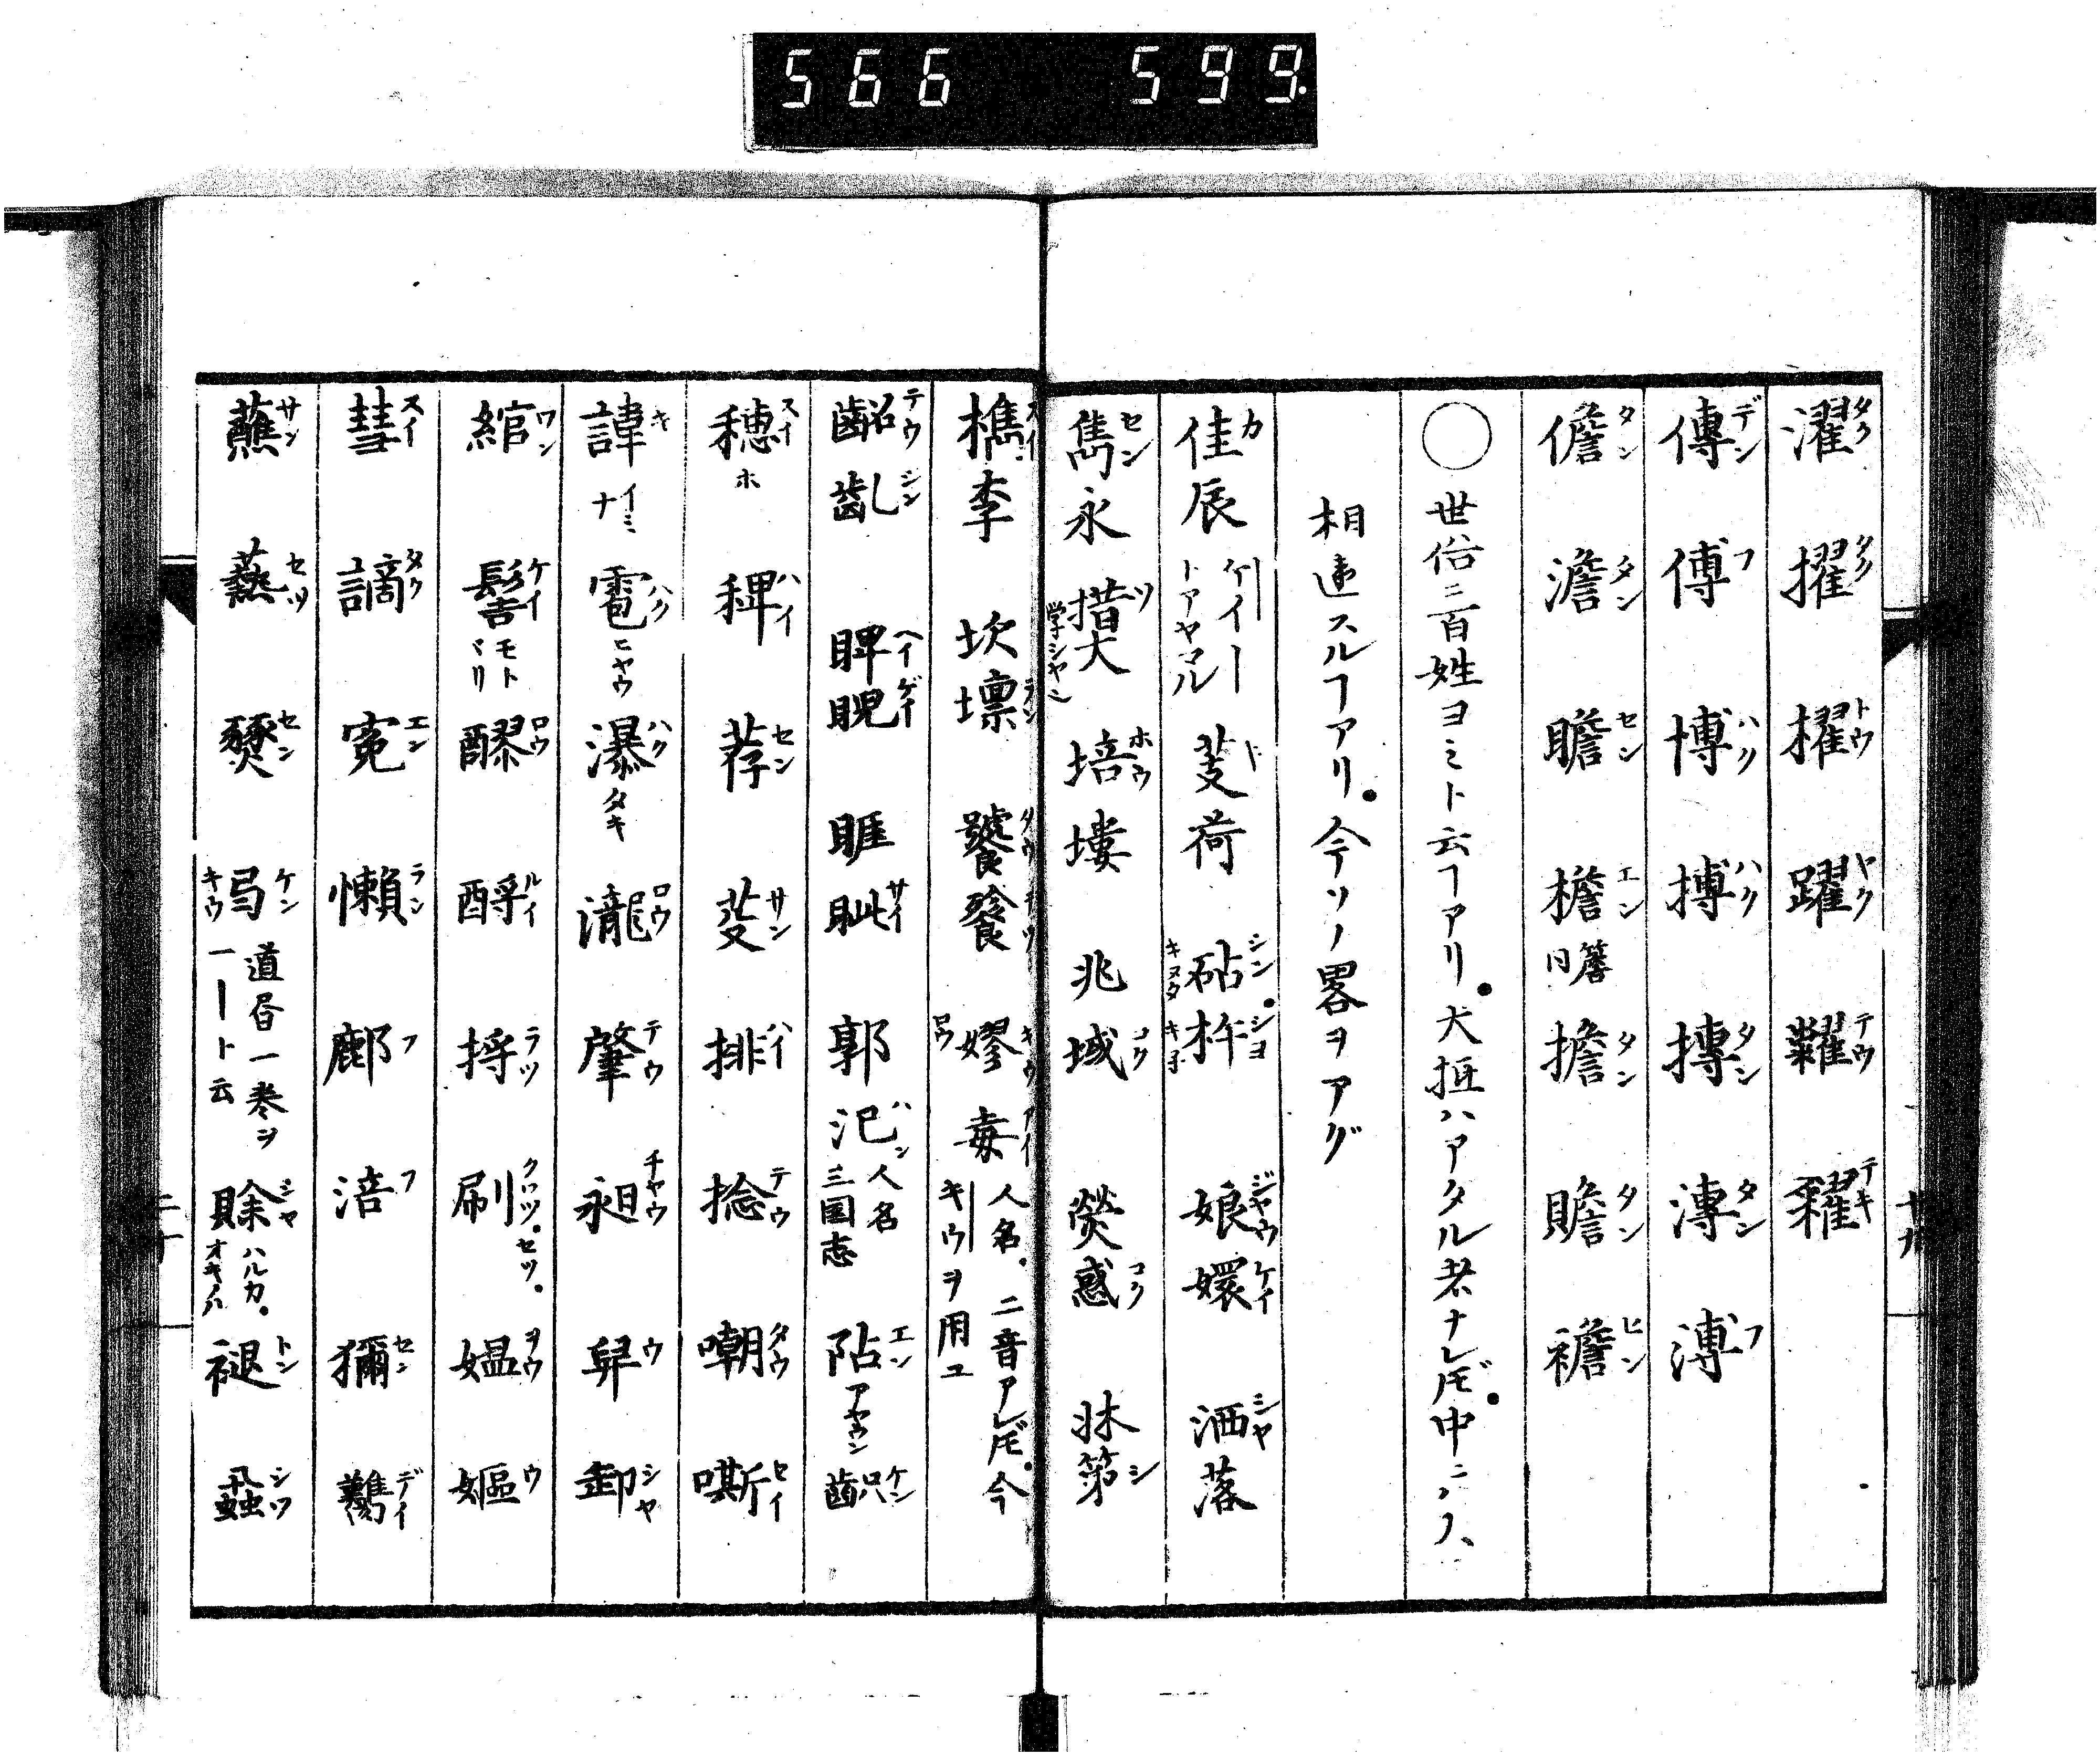 566 599.
濯タク 擢タク 櫂トウ 躍ヤク 糶テウ 糴テキ
傳デン 傅フ 博ハク 搏ハク 摶タン 漙タン 溥フ
儋タン 澹タン 瞻セン 檐エン 簷同 擔タン 贍タン 襜ヒン
○世俗ニ百姓ヨミト云ヿアリ。大抵ハアタル者ナレ𪜈。中ニハ、
相違スルヿアリ。今ソノ畧ヲアグ
佳カ辰 ケイートアヤマル 芰ド荷 砧シン。キヌタ杵シヨキネ 娘ジヤウ嬛ケイ 洒シヤ落
雋セン永 措ツ大学シヤヽ 培ホウ塿 兆域コク 熒惑コク 牀第シ
檇スイ李 坎壈 饕タウ餮テツ 嫪キウロウ毐アイ 人名。二音アレ𪜈。今キウヲ用ユ
齠テウ齓シン 睥ヘイ睨ゲイ 睚眦サイ 郭汜ハン人名三国志 阽エンアヤウシ 齦ケン
穗スイホ 稗ハイ 荐セン 芟サン 排ハイ 捻テウ 嘲タウ 嘶セイ
諱キイミナ 雹ハクヒヤウ 瀑ハクタキ 瀧ロウ 肇テウ 昶チヤウ 舁ウ 卸シヤ
綰ワン 髻ケイモトヾリ 醪ロウ 酹ルイ 捋ラツ 刷クワツ。セツ。 媼ヲウ 嫗ウ
彗スイ 謫タク 寃エン 懶ラン 鄜フ 涪フ 獮セン 鷸デイ
蘸サン 爇セツ 燹セン 弓ケンキウ 道昏一巻ヲ一ートト云 賖シヤハルカ。オキノル 褪トン 蝨シツ
十九
二十